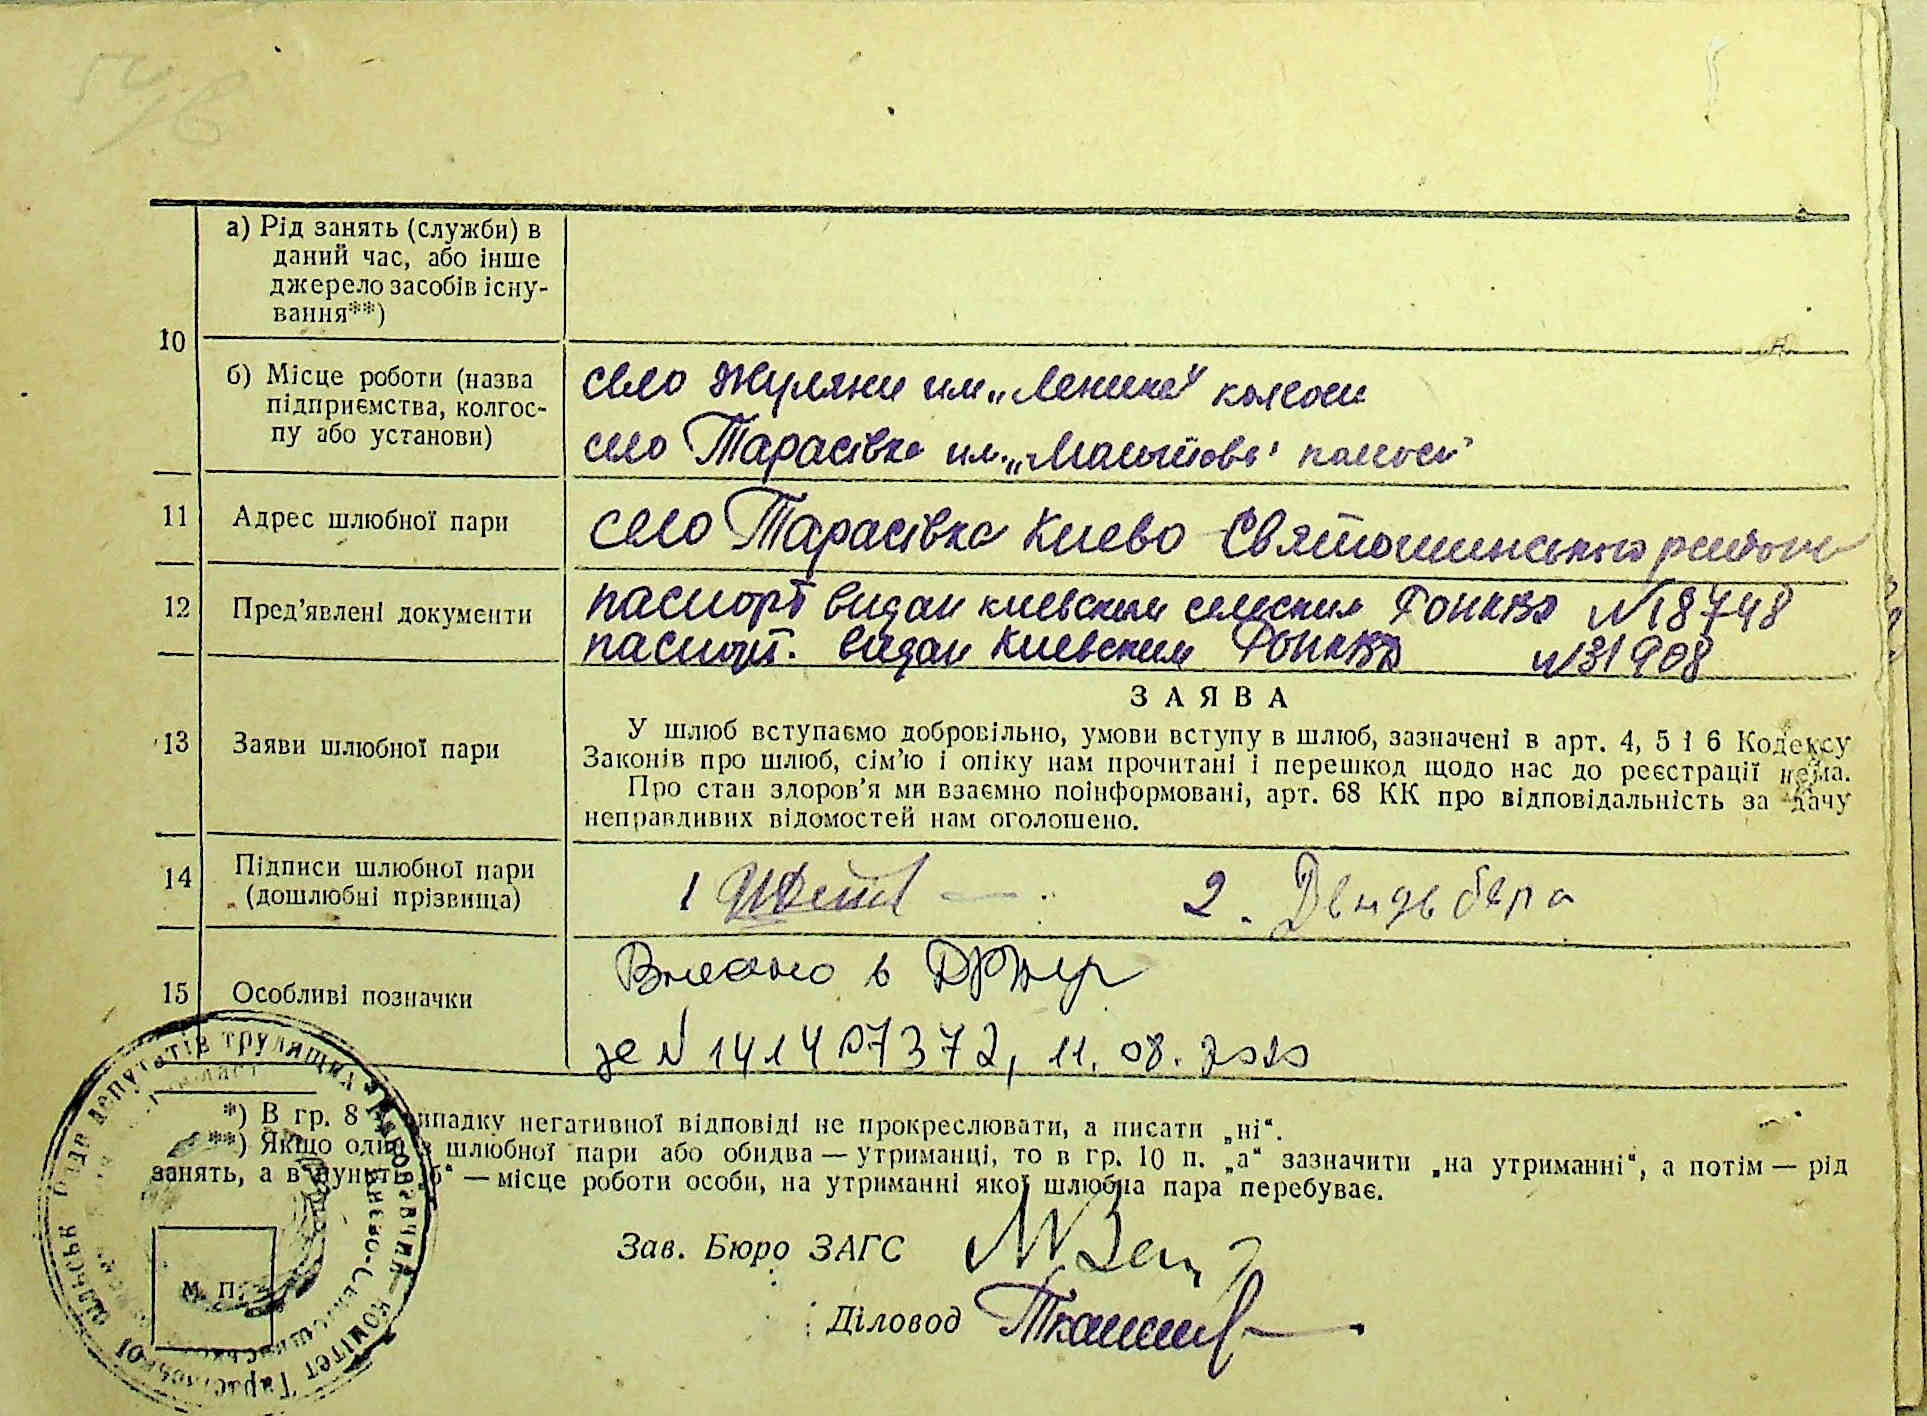 а) Рід занять (служби) в
даний час, або інше
джерело засобів існу-
вання**)
10
б) Місце роботи (назва
підприємства, колгос-
пу або установи)
село Жуляни им „Ленина"
село Тарасівка им.
11 Адрес шлюбної пари
село Тарасівка Киево Святошинського району
12 Пред'явлені документи
паспорт видан киевским сельским РОНКВД №18748
паспорт. видан Киевским РОНКВД №31908
ЗАЯВА
13 Заяви шлюбної пари
У шлюб вступаємо добровільно, умови вступу в шлюб, зазначені в арт. 4, 5 і 6 Кодексу
Законів про шлюб, сім'ю і опіку нам прочитані і перешкод щодо нас до реєстрації нема.
Про стан здоров'я ми взаємно поінформовані, арт. 68 КК про відповідальність за дачу
неправдивих відомостей нам оголошено.
14 Підписи шлюбної пари
(дошлюбні прізвища)
1 2. Дендебера
15 Особливі позначки
Внесено в ДРАЦС
за № 141407372, 11.08.2020
*) В гр. 8 у випадку негативної відповіді не прокреслювати, а писати „ні“.
**) Якщо один з шлюбної пари або обидва — утриманці, то в гр. 10 п. „а“ зазначити „на утриманні“, а потім — рід
занять, а в пункті „б“ — місце роботи особи, на утриманні якої шлюбна пара перебуває.
Зав. Бюро ЗАГС
М. П.
Діловод